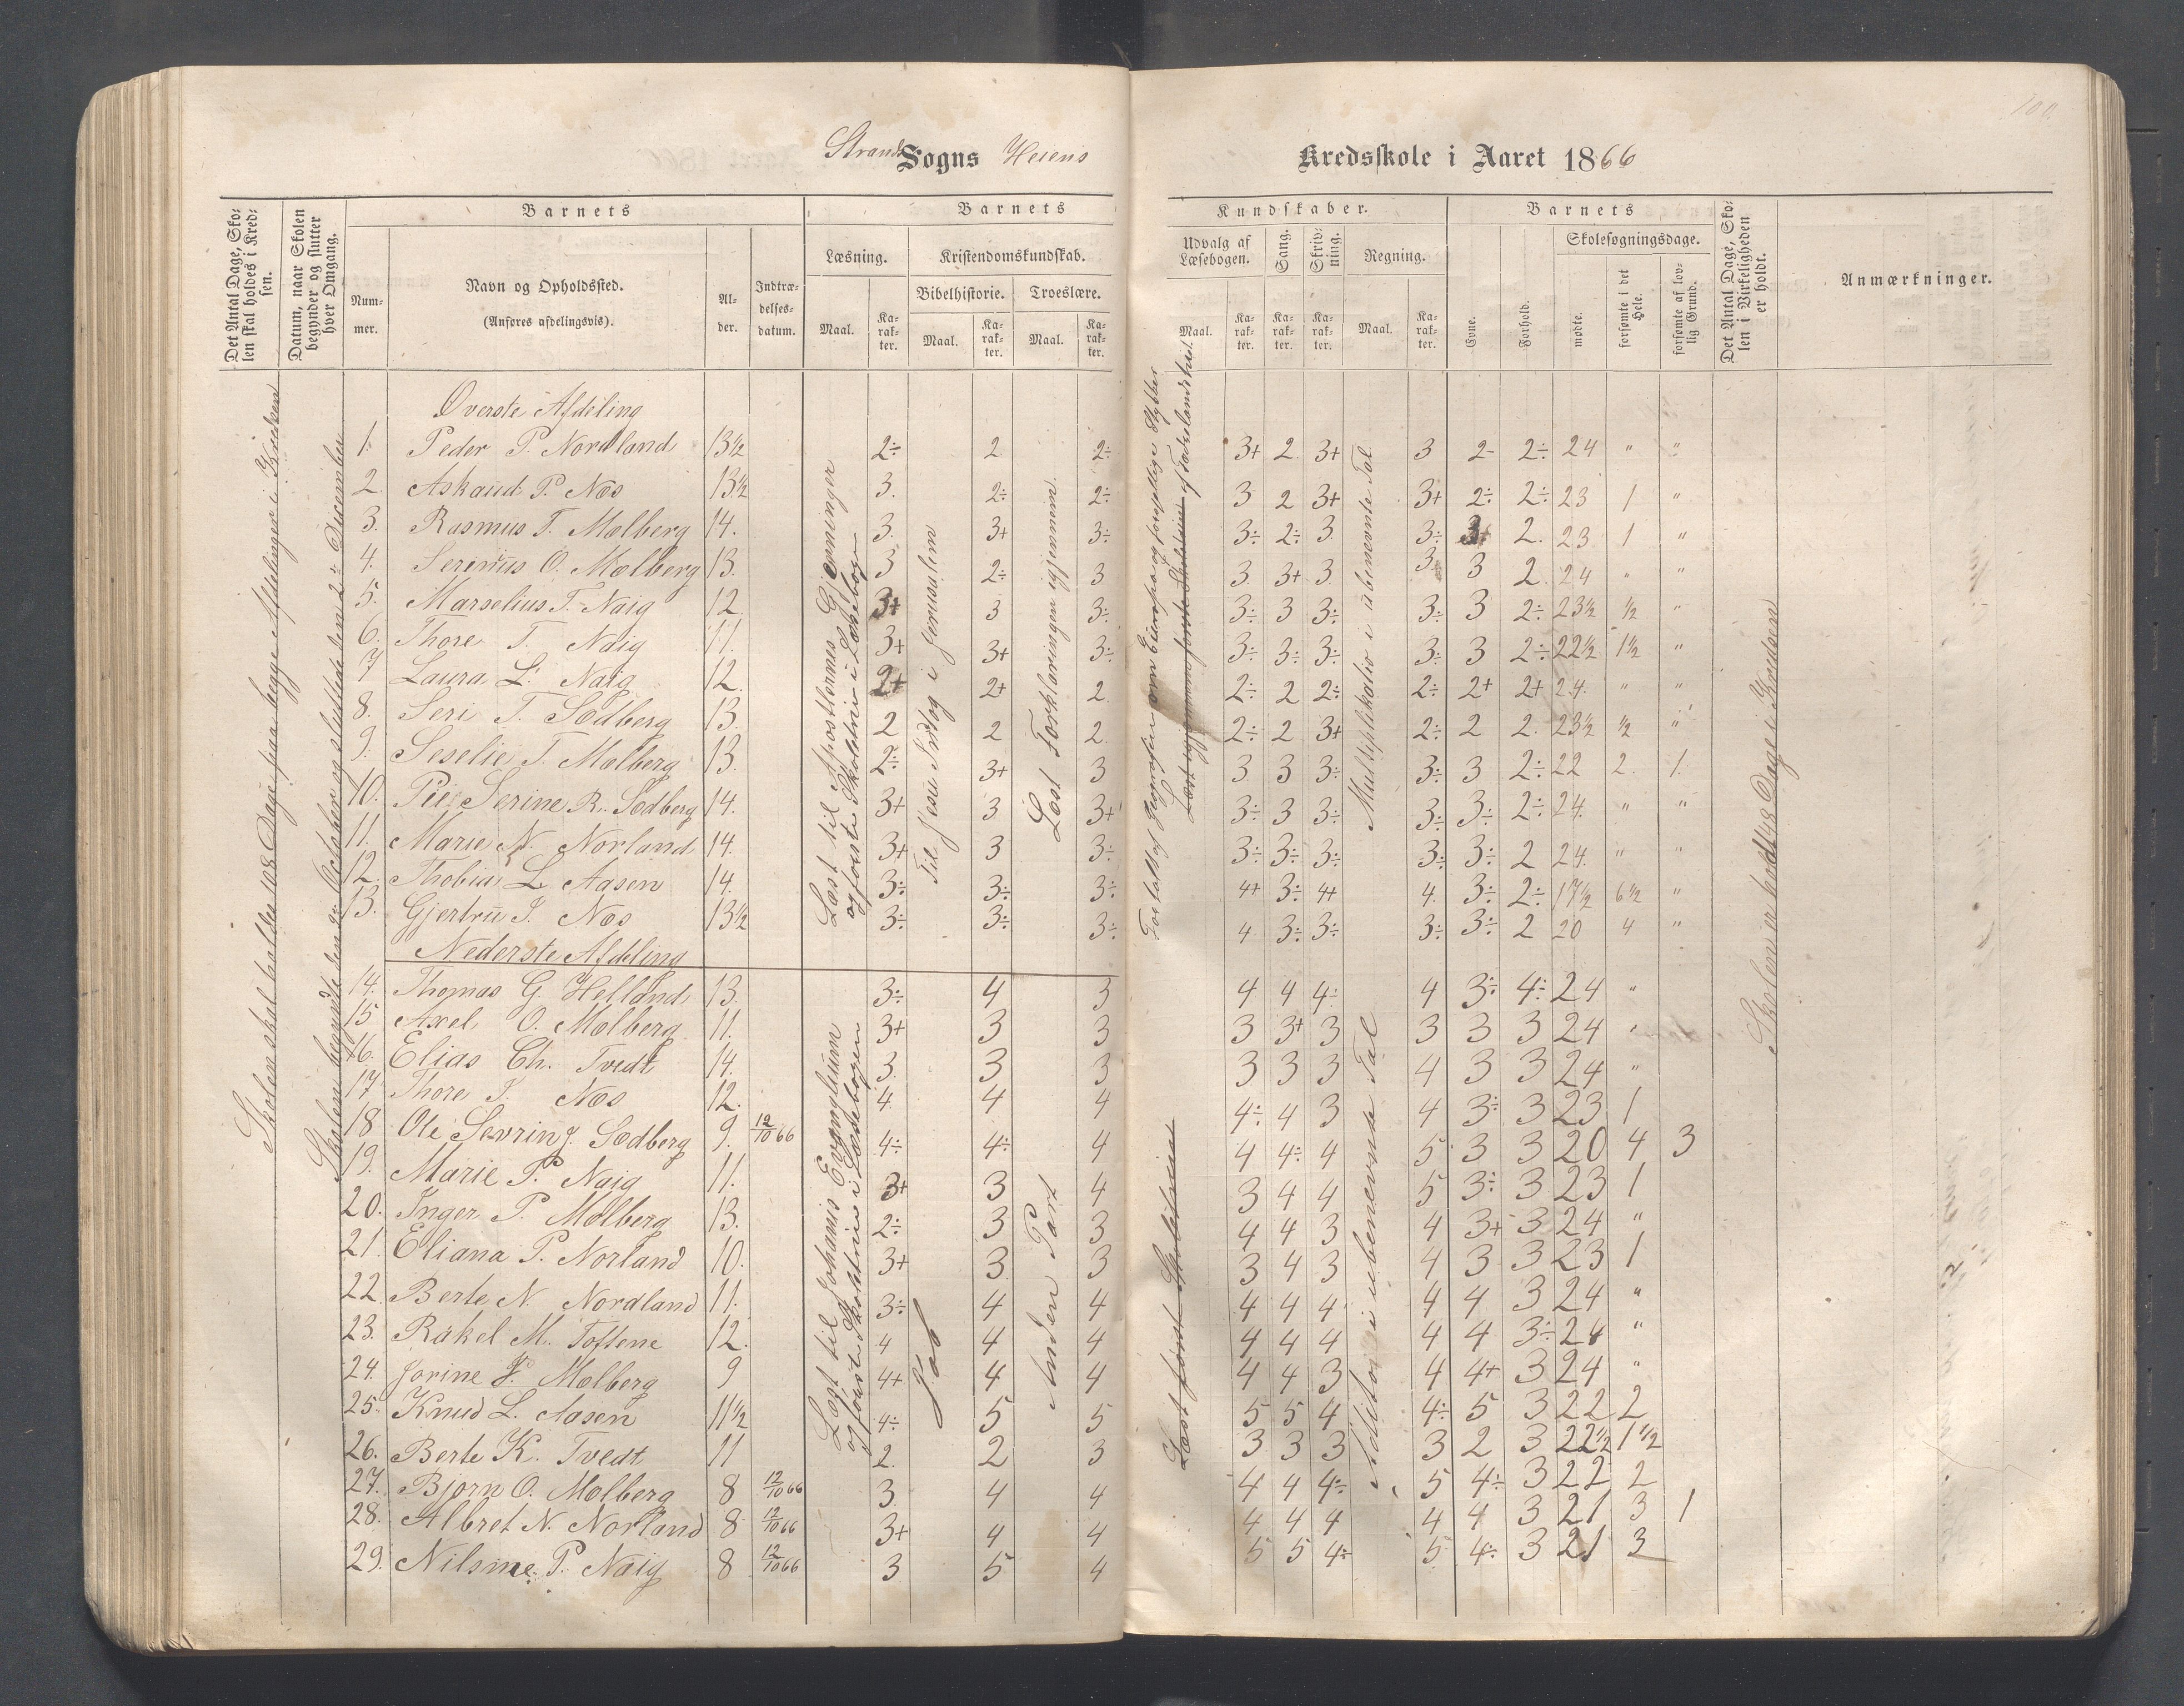 Strands Sogns Heiens
Kredsskole i Aaret 1866
100
Det Antal Dage, Skolen skal holdes i Kredsen.
Datum, naar Skolen begynder og slutter hver Omgang.
Barnets
Nummer.
Navn og Opholdssted.
(Anføres afdelingsvis).
Alder.
Indtrædelsesdatum.
Barnets
Læsning.
Kristendomskundskab.
Bibelhistorie.
Troeslære.
Maal. Karakter. Maal. Karakter. Maal. Karakter.
Kundskaber.
Udvalg af Læsebogen.
Sang.
Skrivning.
Regning.
Maal. Karakter. Karakter. Karakter. Maal. Karakter.
Barnets
Evne.
Forhold.
Skolesøgningsdage.
mødte.
forsømte i det Hele.
forsømte af lovlig Grund.
Det Antal Dage, Skolen i Virkeligheden er holdt.
Anmærkninger.
Skolen skal holdes 108 Dage paa begge Afdelinger i Kredsen
Skolen begyndte den 2. October og sluttede den 2. December
Læst til Apostlernes Gjerninger
og første Skoletrin i Læsebogen
Til Jesu Indtog i Jerusalem
Læst Forklaringen igjennem.
Fortalt af Geografien om Europa og forskjellige Stykker
af Fædrelandshist.
Læst igjennem første Skoletrin
Multiplikatio i ubenevente Tal
Skolen er holdt 48 Dage i Kredsen
Øverste Afdeling
1. Peder P. Nordland 13½ 2÷ 2 2÷ 3+ 2 3+ 3 2- 2÷ 24 " "
2 Askaud P. Næs 13½ 3. 2÷ 2÷ 3 2 3+ 3+ 2÷ 2÷ 23 1 "
3. Rasmus T. Molberg 14. 3. 3+ 3÷ 3÷ 2÷ 3 3÷ 3+ 2. 23 1 "
4. Serinus O. Molberg 13. 3 2÷ 3 3 3+ 3 3 3 2. 24 " "
5. Marselius T. Naig 12 3+ 3 3÷ 3÷ 3 3÷ 3÷ 3 2÷ 23½ ½ "
6. Thore T. Naig 11. 3+ 3+ 3÷ 3÷ 3÷ 3÷ 3÷ 3 2÷ 22½ 1½ "
7 Laura L. Naig 12. 2+ 2+ 2 2÷ 2 2÷ 2÷ 2+ 2+ 24. " "
8. Seri T. Sødberg 13. 2 2 2 2÷ 2 3+ 2÷ 2 2. 23½ ½ "
9. Seselie T. Molberg 13. 2÷ 3+ 3 3 3 3÷ 3÷ 3 2÷ 22 2. 1.
10. Serine R. Sødberg 14. 3+ 3 3+ 3÷ 3 3÷ 3÷ 3÷ 2÷ 24. " "
11. Marie N. Norland 14. 3+ 3 3÷ 3÷ 3÷ 3÷ 3÷ 3÷ 2 24. " "
12. Thobias L. Aasen 14. 3÷ 3÷ 3÷ 4+ 3÷ 4+ 4. 3÷ 2÷ 17½ 6½ "
13. Gjertru J. Næs 13½ 3÷ 3÷ 3÷ 4 3÷ 3÷ 3÷ 3÷ 2 20 4 "
Nederste Afdeling
Lægt til Johannis Evangelium
og første Skoletrin i Læsebogen
Job
Anden Part
Læst først Skoletrin
Additon i ubenevnte Tal
14. Thomas G. Helland 13. 3÷ 4 3 4 4 4÷ 4 3÷ 4÷ 24 "
15 Axel O. Molberg 11. 3+ 3 3 3 3+ 3 3 3 3 24 "
16. Elias Ch. Tvedt 14. 3. 3 3 3 3 3 4 3 3 24 "
17 Thore J. Næs 12. 4 4 4 4÷ 4 3 4 3÷ 3 23 1
18 Ole Sevrin J. Sødberg 9. 12/10 66 4÷ 4÷ 4 4 4÷ 4 5 3 3 20 4 3
19. Marie P. Naig 11. 3+ 3 4 3 4 4 5 3÷ 3 23 1
20. Inger P. Molberg 13. 2÷ 3 3 4 4 3 4 3+ 3 24 "
21. Eliana P. Norland 10. 3+ 3 3 3 4 3 4 3 3 23 1
22. Berte N. Nordland 11. 3÷ 4 4 4 4 4 4 4 3 24 "
23. Rakel M. Toftene 12. 4 4 4 4 4 4 4 4 3÷ 24 "
24. Jorine J. Molberg 9 4+ 4 4 4 4 3 4 4+ 3 24 "
25. Knud L. Aasen 11½ 4÷ 5 5 5 5 4 4÷ 5 3 22 2
26. Berte K. Tvedt 11 2. 2 3 3 3 3 3 2 3 22½ 1½
27. Bjørn O. Molberg 8 12/10 66 3. 4 4 4 4 4÷ 5 4÷ 3 22 2
28. Albret N. Norland 8 12/10 66 3+ 4 4 4 4 4 4 4 3 21 3 1
29. Nilsine P. Naig 8 12/10 66 3 5 4 5 5 4÷ 5 4÷ 3 21 3